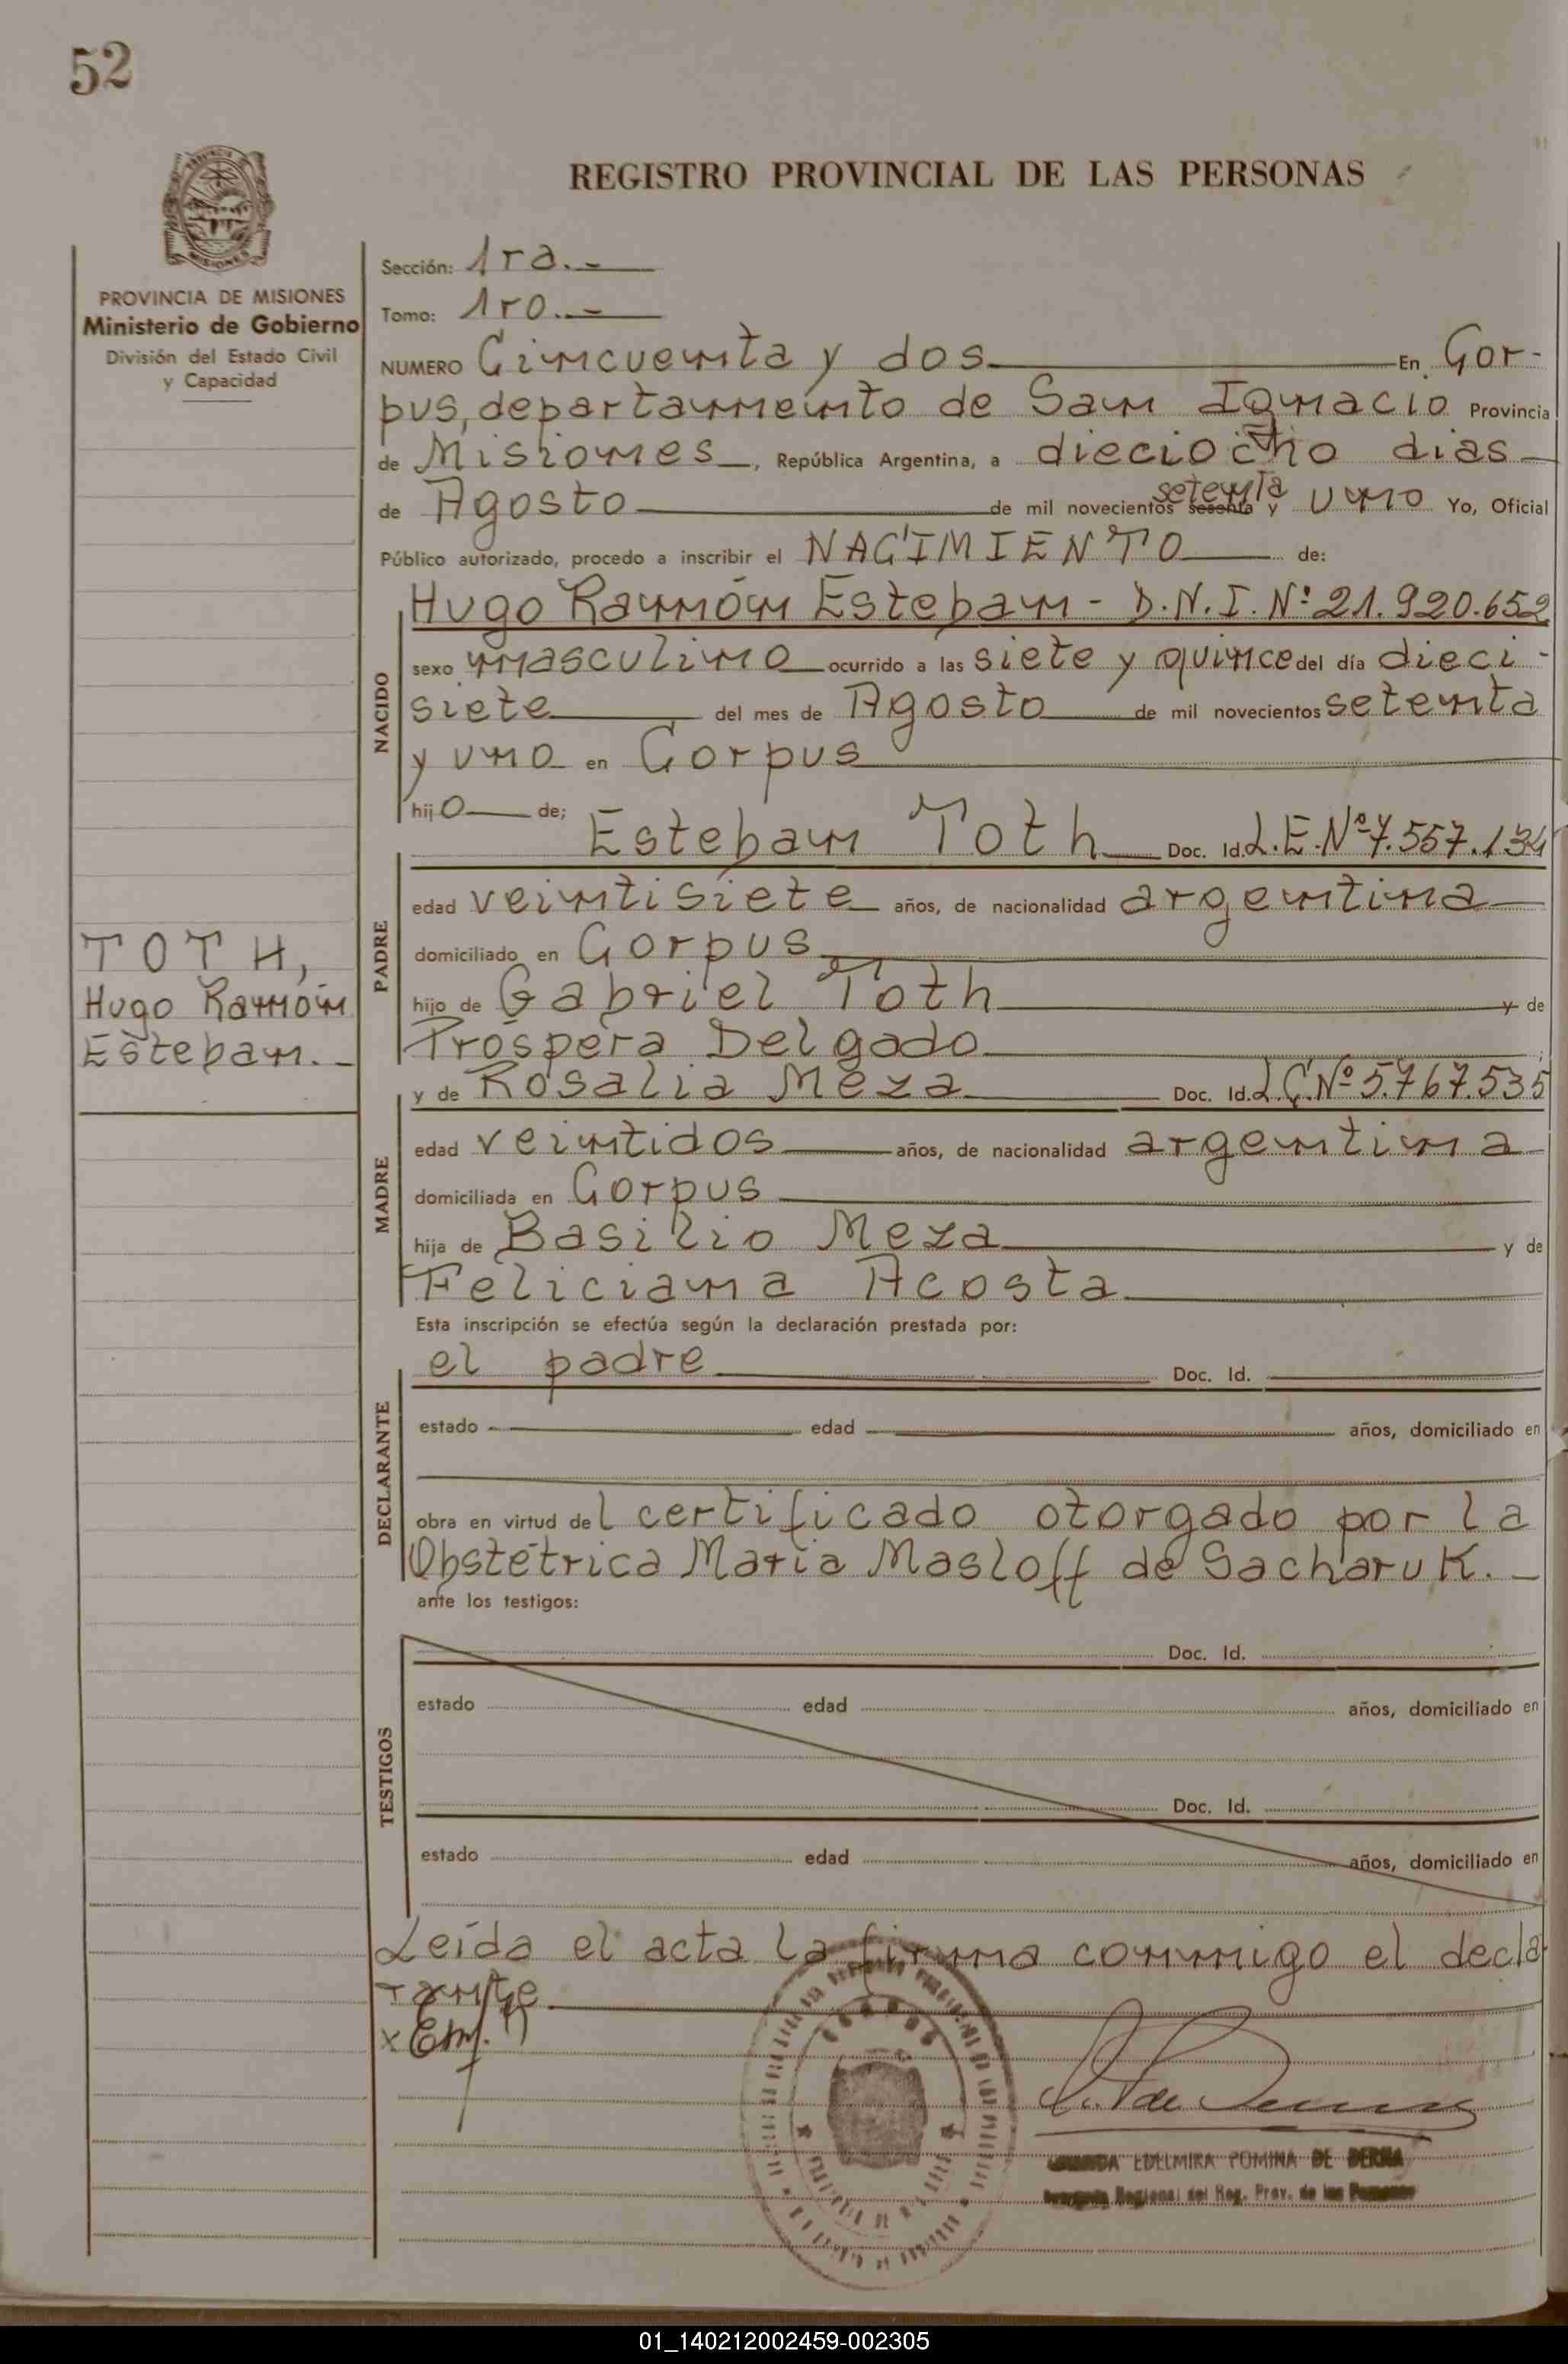 52
REGISTRO PROVINCIAL DE LAS PERSONAS
PROVINCIA DE MISIONES
Ministerio de Gobierno
División del Estado Civil
y Capacidad
Sección: 1ra.-
Tomo: 1ro.-
NUMERO Cincuenta y dos En Cor-
pus, departamento de San Ignacio Provincia
de Misiones, República Argentina, a dieciocho dias
de Agosto de mil novecientos sesenta setenta y uno Yo, Oficial
Público autorizado, procedo a inscribir el NACIMIENTO de:
NACIDO
Hugo Ramón Esteban - D.N.I. Nº 21.920.652
sexo masculino ocurrido a las siete y quince del día dieci-
siete del mes de Agosto de mil novecientos setenta
y uno en Corpus
hijo de;
PADRE
Esteban Toth Doc. Id. L.E.Nº 7.557.134
edad veintisiete años, de nacionalidad argentina
domiciliado en Corpus
hijo de Gabriel Toth y de
Próspera Delgado
TOTH,
Hugo Ramón
Esteban.-
MADRE
y de Rosalia Meza Doc. Id. L.C.Nº 5.767.535
edad veintidos años, de nacionalidad argentina
domiciliada en Corpus
hija de Basilio Meza y de
Feliciana Acosta
Esta inscripción se efectúa según la declaración prestada por:
DECLARANTE
el padre Doc. Id.
estado edad años, domiciliado en
obra en virtud del certificado otorgado por la
Obstétrica Maria Masloff de Sacharuk.-
ante los testigos:
TESTIGOS
Doc. Id.
estado edad años, domiciliado en
Doc. Id.
estado edad años, domiciliado en
Leída el acta la firma conmigo el decla
rante
EDELMIRA POMINA DE
Regional del Reg. Prov. de las Personas
01_140212002459-002305